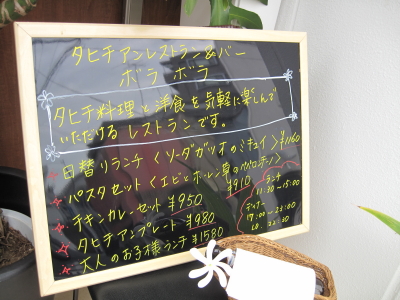 タヒチアンレストラン&バー
ボラボラ
タヒチ料理と洋食を気軽に楽しんで
いただけるレストランです。
日替りランチ〈ソーダガツオのミキュイ〉¥1160
パスタセット〈エビとホーレン草のペペロンチーノ〉¥910
チキンカレーセット ¥950
タヒチアンプレート ¥980
大人のお子様ランチ ¥1580
ランチ
11:30-15:00
ディナー
17:00-23:00
LO. 22:30